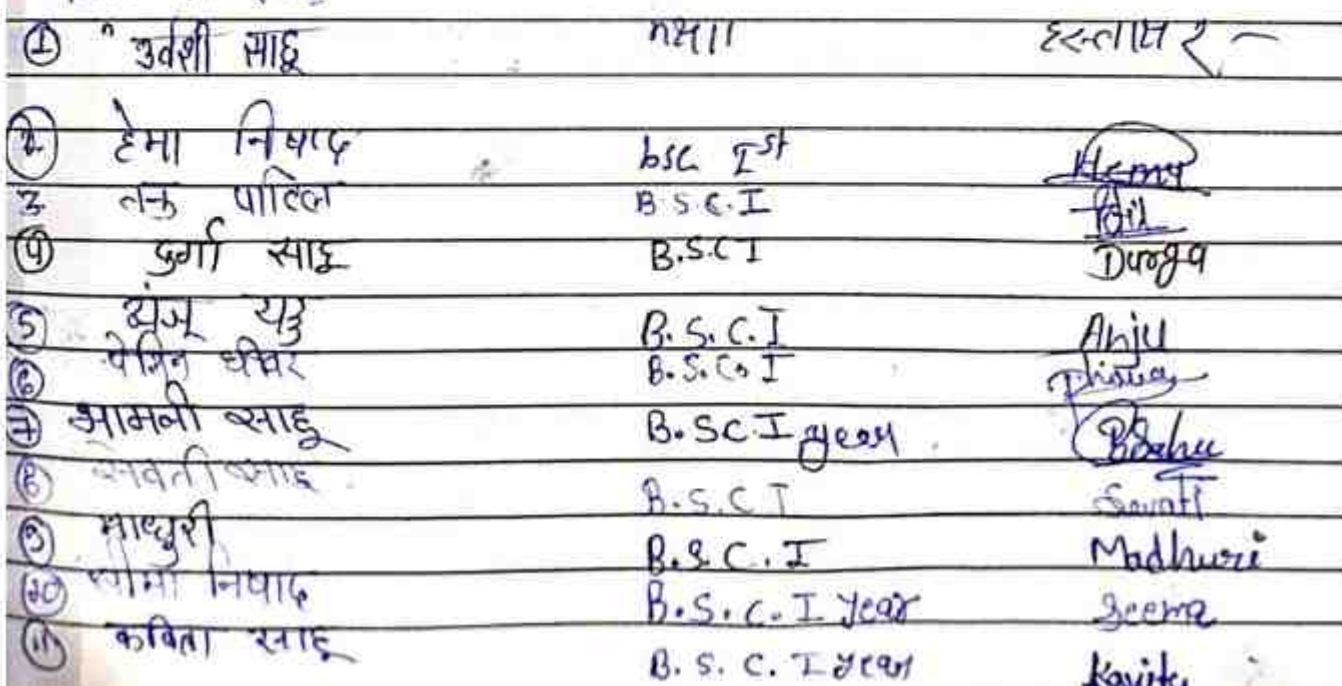 ① " उर्वशी साहू कक्षा हस्ताक्षर -
② हेमा निषाद bsc Ist Hema
3 तनु पाटिल B.S.C.I Patil
④ दुर्गा साहू B.S.C I Durga
⑤ अंजू यदु B.S.C.I Anju
⑥ धीवर B.S.C. I
⑦ भामनी साहू B.SC.I year BSahu
⑧ सेवती साहू B.S.C I Sevati
⑨ माधुरी B.S.C.I Madhuri
⑩ सीमा निषाद B.S.C.I Year Seema
⑪ कविता साहू B.S.C. I year Kavita